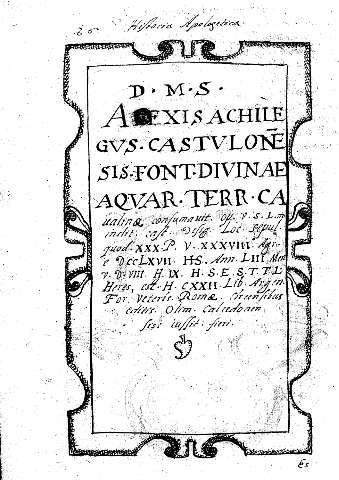 Historia Apologetica
D · M · S ·
ALEXIS ACHILE
GVS · CASTVLONE
SIS · FONT · DIVINAE
AQVAR · TERR · CA
ualinæ consumauit V. S. L.
Loc. sepul
quod. XXX. P. V. XXXVIII. Agr
e DccLXVII HS. Ann. LIII. Men
v. D. VIII H. IX H. S. E. S. T. T. L
Heres, est H CXXII Lib. Argen
For. veteris Romæ circensibus
editis Olim
iussit fieri.
Es